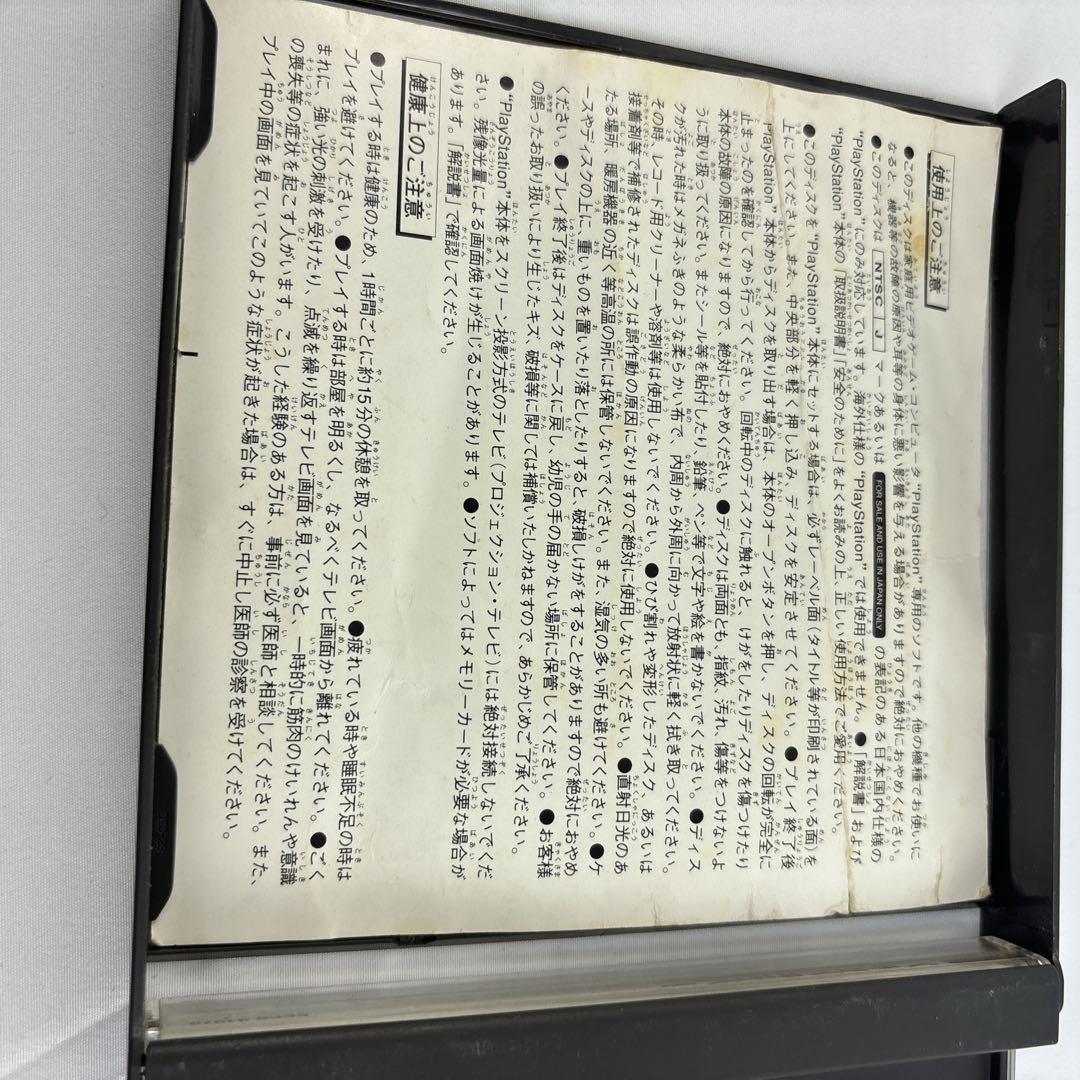 使用上のご注意
●このディスクは家庭用ビデオゲーム・コンピュータ“PlayStation”専用のソフトです。他の機種でお使いに
なると、機器等の故障の原因や耳等の身体に悪い影響を与える場合がありますので絶対におやめください。
●このディスクは NTSC J マークあるいは FOR SALE AND USE IN JAPAN ONLY の表記のある日本国内仕様の
“PlayStation”にのみ対応しています。海外仕様の“PlayStation”では使用できません。●「解説書」および
“PlayStation”本体の「取扱説明書」「安全のために」をよくお読みの上、正しい使用方法でご愛用ください。
●このディスクを“PlayStation”本体にセットする場合は、必ずレーベル面(タイトル等が印刷されている面)を
上にしてください。また、中央部分を軽く押し込み、ディスクを安定させてください。●プレイ終了後
“PlayStation”本体からディスクを取り出す場合は、本体のオープンボタンを押し、ディスクの回転が完全に
止まったのを確認してから行ってください。回転中のディスクに触れると、けがをしたりディスクを傷つけたり
本体の故障の原因になりますので、絶対におやめください。●ディスクは両面とも、指紋、汚れ、傷等をつけないよ
うに取り扱ってください。またシール等を貼付したり、鉛筆、ペン等で文字や絵を書かないでください。●ディス
クが汚れた時はメガネふきのような柔らかい布で、内周から外周に向かって放射状に軽く拭き取ってください。
その時、レコード用クリーナーや溶剤等は使用しないでください。●ひび割れや変形したディスク、あるいは
接着剤等で補修されたディスクは誤作動の原因になりますので絶対に使用しないでください。●直射日光のあ
たる場所、暖房機器の近く等高温の所には保管しないでください。また、湿気の多い所も避けてください。●ケ
ースやディスクの上に、重いものを置いたり落としたりすると、破損しけがをすることがありますので絶対におやめ
ください。●プレイ終了後はディスクをケースに戻し、幼児の手の届かない場所に保管してください。●お客様
の誤ったお取り扱いにより生じたキズ、破損等に関しては補償いたしかねますので、あらかじめご了承ください。
●“PlayStation”本体をスクリーン投影方式のテレビ(プロジェクション・テレビ)には絶対接続しないでくだ
さい。残像光量による画面焼けが生じることがあります。●ソフトによってはメモリーカードが必要な場合が
あります。「解説書」で確認してください。
健康上のご注意
●プレイする時は健康のため、1時間ごとに約15分の休憩を取ってください。●疲れている時や睡眠不足の時は
プレイを避けてください。●プレイする時は部屋を明るくし、なるべくテレビ画面から離れてください。●ごく
まれに、強い光の刺激を受けたり、点滅を繰り返すテレビ画面を見ていると、一時的に筋肉のけいれんや意識
の喪失等の症状を起こす人がいます。こうした経験のある方は、事前に必ず医師と相談してください。また、
プレイ中の画面を見ていてこのような症状が起きた場合は、すぐに中止し医師の診察を受けてください。